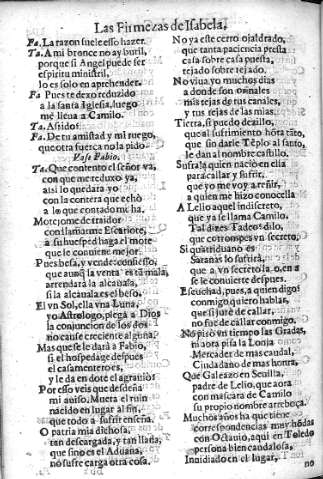 Las Firmezas de Isabela,
Fa. La razon suele esso hazer.
Ta. A mi bronce no ay buril,
porque si Angel puede ser
espiritu ministril,
lo es solo en aprehender.
Fa Pues te dexo reduzido
a la santa Iglesia, luego
me llena a Camilo.
Ta. Assidos
Fa. De tu amistad y mi ruego,
que otra fuerça no la pido
Vase Fabio.
Ta. Que contento el señor va,
con que me reduxo ya,
assi lo quedara yo
con la contera que echò
a lo que contado me ha.
Motejome de traidor
con llamarme Escariote,
a su huesped haga el mote
que le conuiene mejor.
Pues besa, y vende: confiesso,
que aunq̃ la venta es tã mala,
arrendarà la alcauala,
si la alcauala es el beso.
El vn Sol, ella vna Luna,
yo Astrologo, plega a Dios
la conjuncion de los dos
no cause creciente alguna.
Mas que se le darà a Fabio,
si el hospedage despues
el casamentero es,
y le da en dote el agrauio?
Por esso veis que desdeña
mi auiso. Muera el ruin
nacido en lugar al fin,
que todo a sufrir enseña.
O patria mia dichosa,
tan descargada, y tan llana,
que sino es el Aduana,
no sufre carga otra cosa.
No ya este cerro ojaldrado,
que tanta paciencia presta
casa sobre casa puesta,
tejado sobre tejado.
No viua yo muchos dias
a donde son orinales
mis tejas de tus canales,
y tus tejas de las mias.
Tierra, si puedo dezillo,
que al sufrimiento hõra tãto,
que sin darle Tẽplo al santo,
le dan al nombre castillo.
Sufra la quien naciò en ella
para callar y sufrir,
que yo me voy a reñir,
a quien me hizo conocella
A Lelio aquel indiscreto,
que ya se llama Camilo.
Tal dizes Tadeo: dilo,
que corrompes vn secreto.
Si quatriduano es
Satanas lo sufrirà,
que a vn secreto la o, en a
se le conuierte despues.
Escuchad, pues, a quien digo?
conmigo quiero hablar,
que si jurè de callar,
no fue de callar conmigo.
No pisò vn tiempo las Gradas,
ni aora pisa la Lonja
Mercader de mas caudal,
Ciudadano de mas honra,
Que Galeazo en Seuilla,
padre de Lelio, que aora
con mascara de Camilo
su propio nombre arreboça.
Muchos años ha que tiene
correspondencias muy hõdas
con Octauio, aqui en Toledo
persona bien caudalosa,
Inuidiado en el lugar,
no